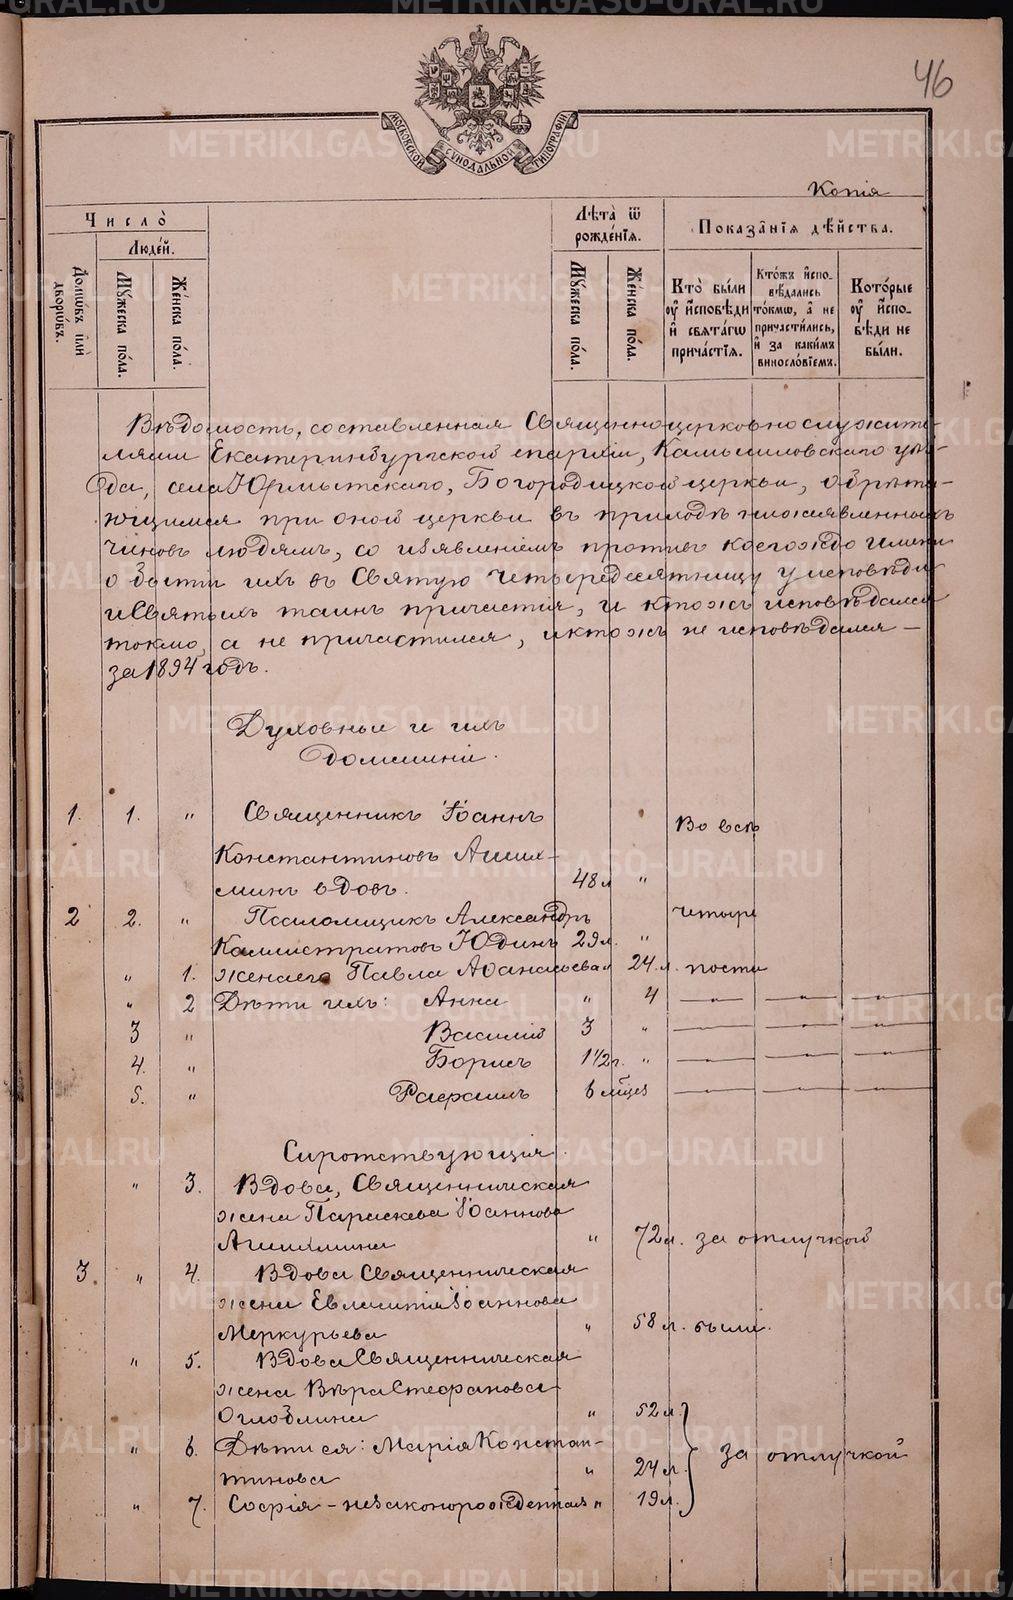 METRIKI.GASO-URAL.RU
46
МОСКОВСКОЙ СУНОДАЛЬНОЙ ТИПОГРАФІИ
Копія
Число̀
Людéй.
Домѡвъ илѝ дворѡвъ.
Мꙋ́жеска по́ла.
Же́нска по́ла.
Лѣ́та ѿ рожде́нїѧ.
Мꙋ́жеска по́ла.
Же́нска по́ла.
Показа̑нїѧ дѣ́йства.
Кто̀ бы́ли ᲂу҆ и҆сповѣ́ди и҆ свѧта́гѡ прича́стїѧ.
Кто́жъ и҆сповѣ́дались то́кмѡ, а҆ не причасти́лись, и҆ за каки́мъ винослѡ́вїемъ.
Кото́рые ᲂу҆ и҆сповѣ́ди не бы́ли.
Вѣдомость, составленная Священноцерковнослужите-
лями Екатеринбургской епархіи, Камышловскаго уѣз-
да, села Юрмытскаго, Богородицкой церкви, обрѣта-
ющимся при оной церкви въ приходѣ нижеявленныхъ
чиновъ людямъ, со изъявленіемъ противъ коегождо имени
о бытіи ихъ въ Святую Четыредесятницу у исповѣди
и Святыхъ таинъ причастія, и ктожъ исповѣдался
токмо, а не причастился, и ктожъ не исповѣдался —
за 1894 годъ.
Духовные и ихъ
домашніе.
1. 1. " Священникъ Іоаннъ
Во всѣ
Константиновъ Аших-
минъ вдовъ. 48 л "
2 2. " Псаломщикъ Александръ четыре
Каллистратовъ Юдинъ 29 л. "
" 1. жена его Павла Аѳанасьева " 24. л. поста
" 2 Дѣти ихъ: Анна " 4 — " — — " — — " —
3 " Василій 3 " — " — — " — — " —
4. " Борисъ 1 1/2 г. " — " — — " — — " —
5. " Рафаилъ 6 мѣцъ — " — — " — — " —
Сиротствующія.
" 3. Вдова, Священническая
жена Параскева Іоаннова
Ашихмина " 72 л. за отлучкой
3 " 4. Вдова Священническая
жена Евлампія Іоаннова
Меркурьева " 58 л. были.
" 5. Вдова Священническая
жена Вѣра Стефановна
Оглоблина " 52 л.
" 6. Дѣти ея: Марія Констан-
за отлучкой
тинова " 24 л.
" 7. Софія - незаконорожденная " 19 л.